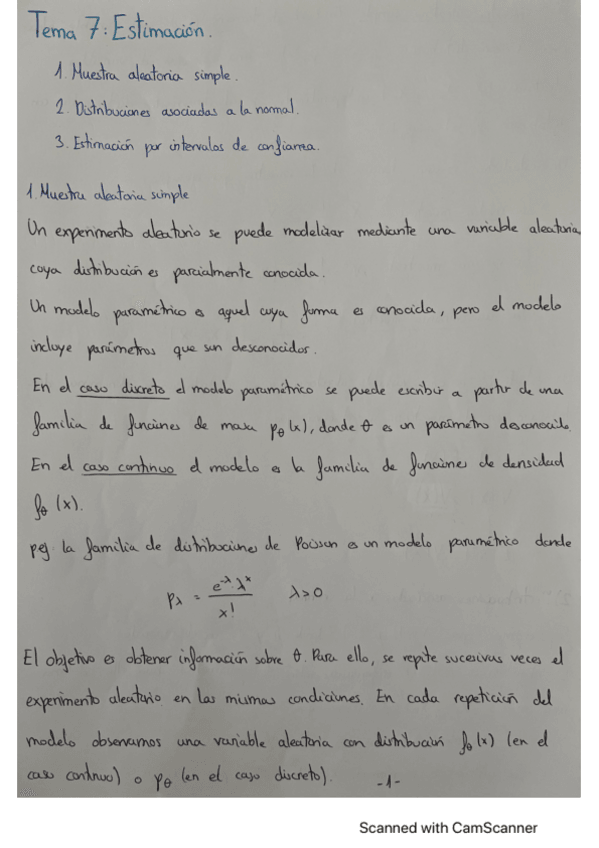 Tema 7: Estimación.
1. Muestra aleatoria simple.
2. Distribuciones asociadas a la normal.
3. Estimación por intervalos de confianza.
1. Muestra aleatoria simple
Un experimento aleatorio se puede modelizar mediante una variable aleatoria,
cuya distribución es parcialmente conocida.
Un modelo paramétrico es aquel cuya forma es conocida, pero el modelo
incluye parámetros que son desconocidos.
En el caso discreto el modelo paramétrico se puede escribir a partir de una
familia de funciones de masa pθ(x), donde θ es un parámetro desconocido.
En el caso continuo el modelo es la familia de funciones de densidad
fθ (x).
pej. la familia de distribuciones de Poisson es un modelo paramétrico donde
pλ = e^-λ λ^x / x!   λ>0
El objetivo es obtener información sobre θ. Para ello, se repite sucesivas veces el
experimento aleatorio en las mismas condiciones. En cada repetición del
modelo observamos una variable aleatoria con distribución fθ(x) (en el
caso continuo) o pθ (en el caso discreto).
-1-
Scanned with CamScanner